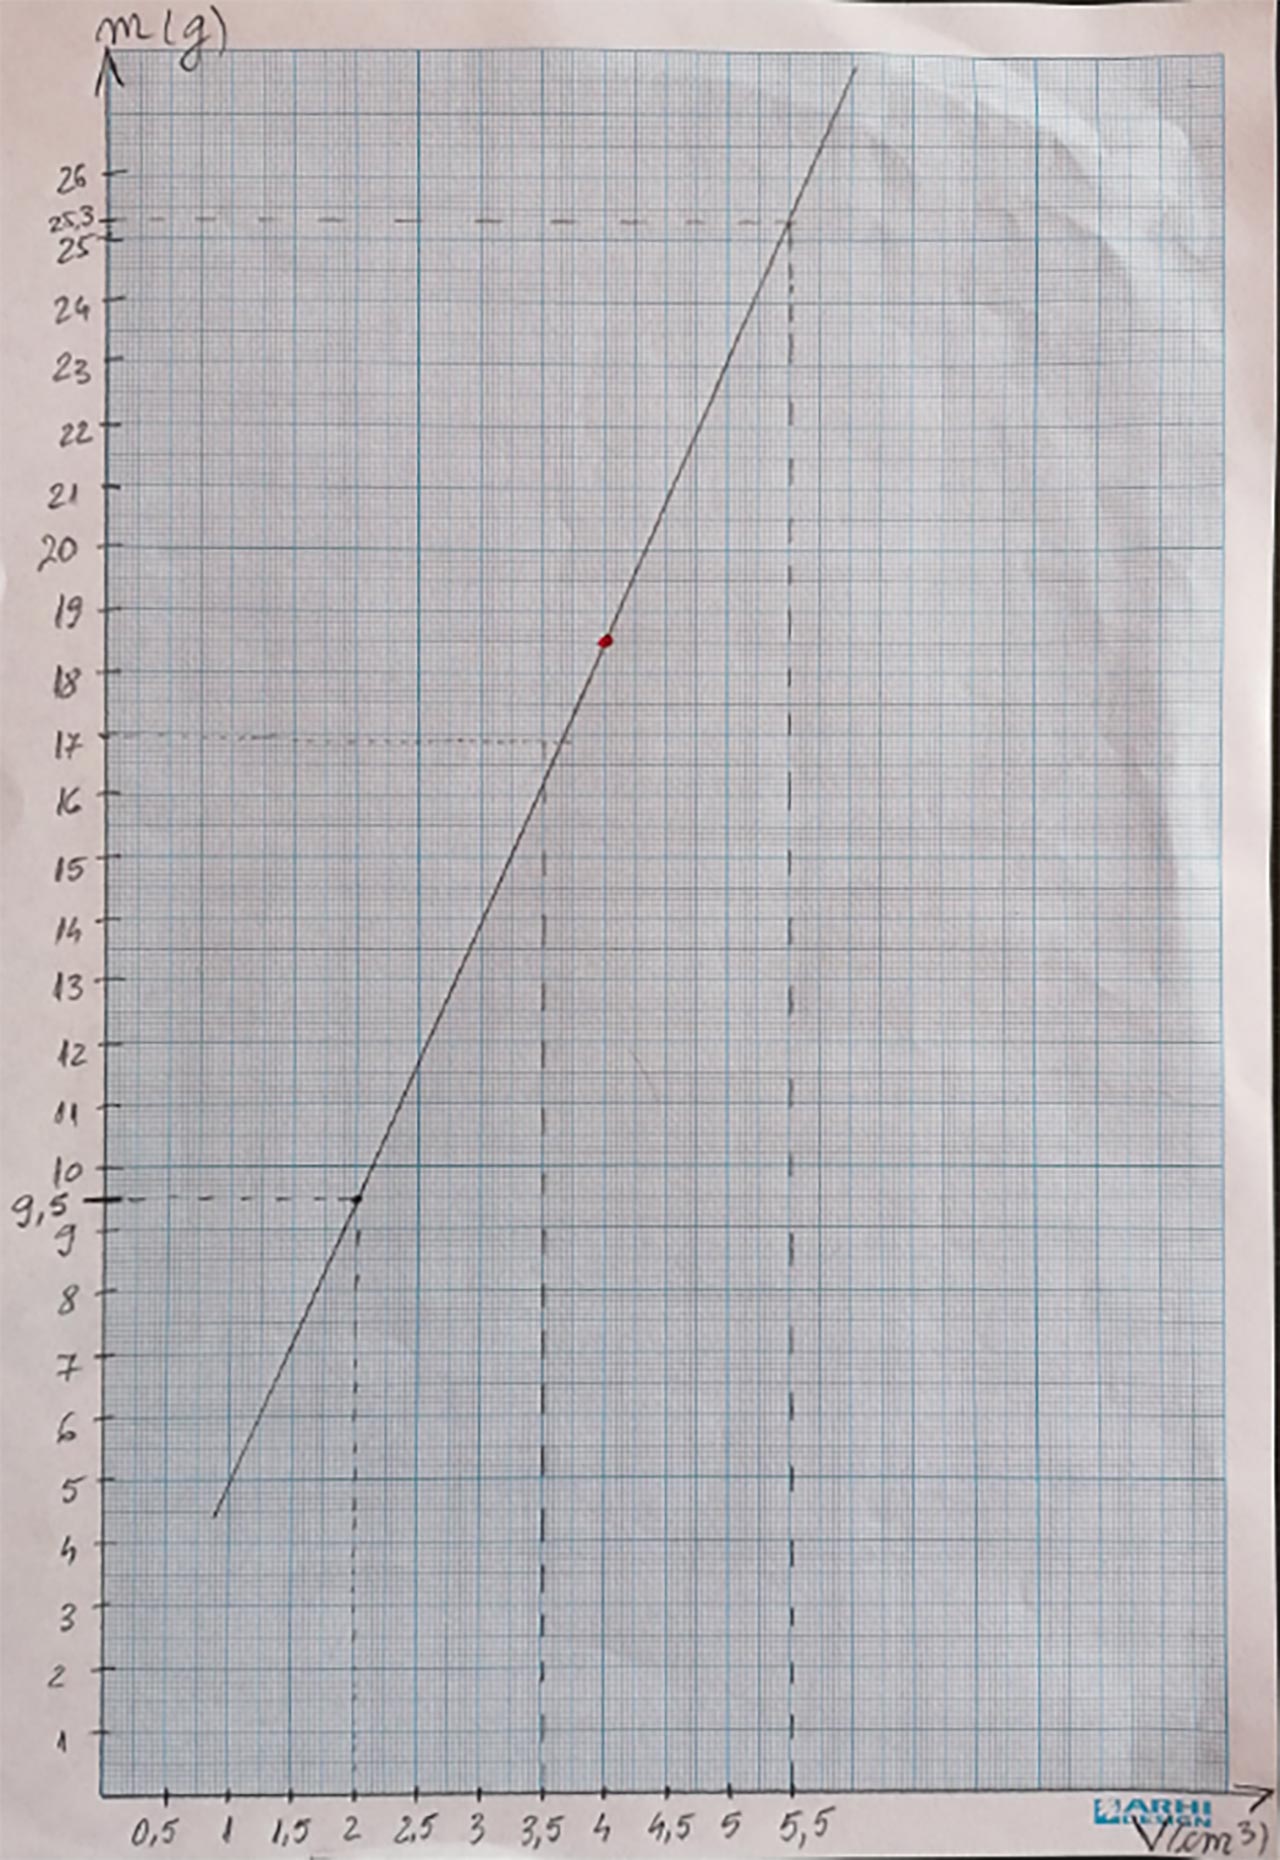 m(g)
26
25,3
25
24
23
22
21
20
19
18
17
16
15
14
13
12
11
10
9,5
9
8
7
6
5
4
3
2
1
0,5 1 1,5 2 2,5 3 3,5 4 4,5 5 5,5
ARHI
DESIGN
V(cm³)